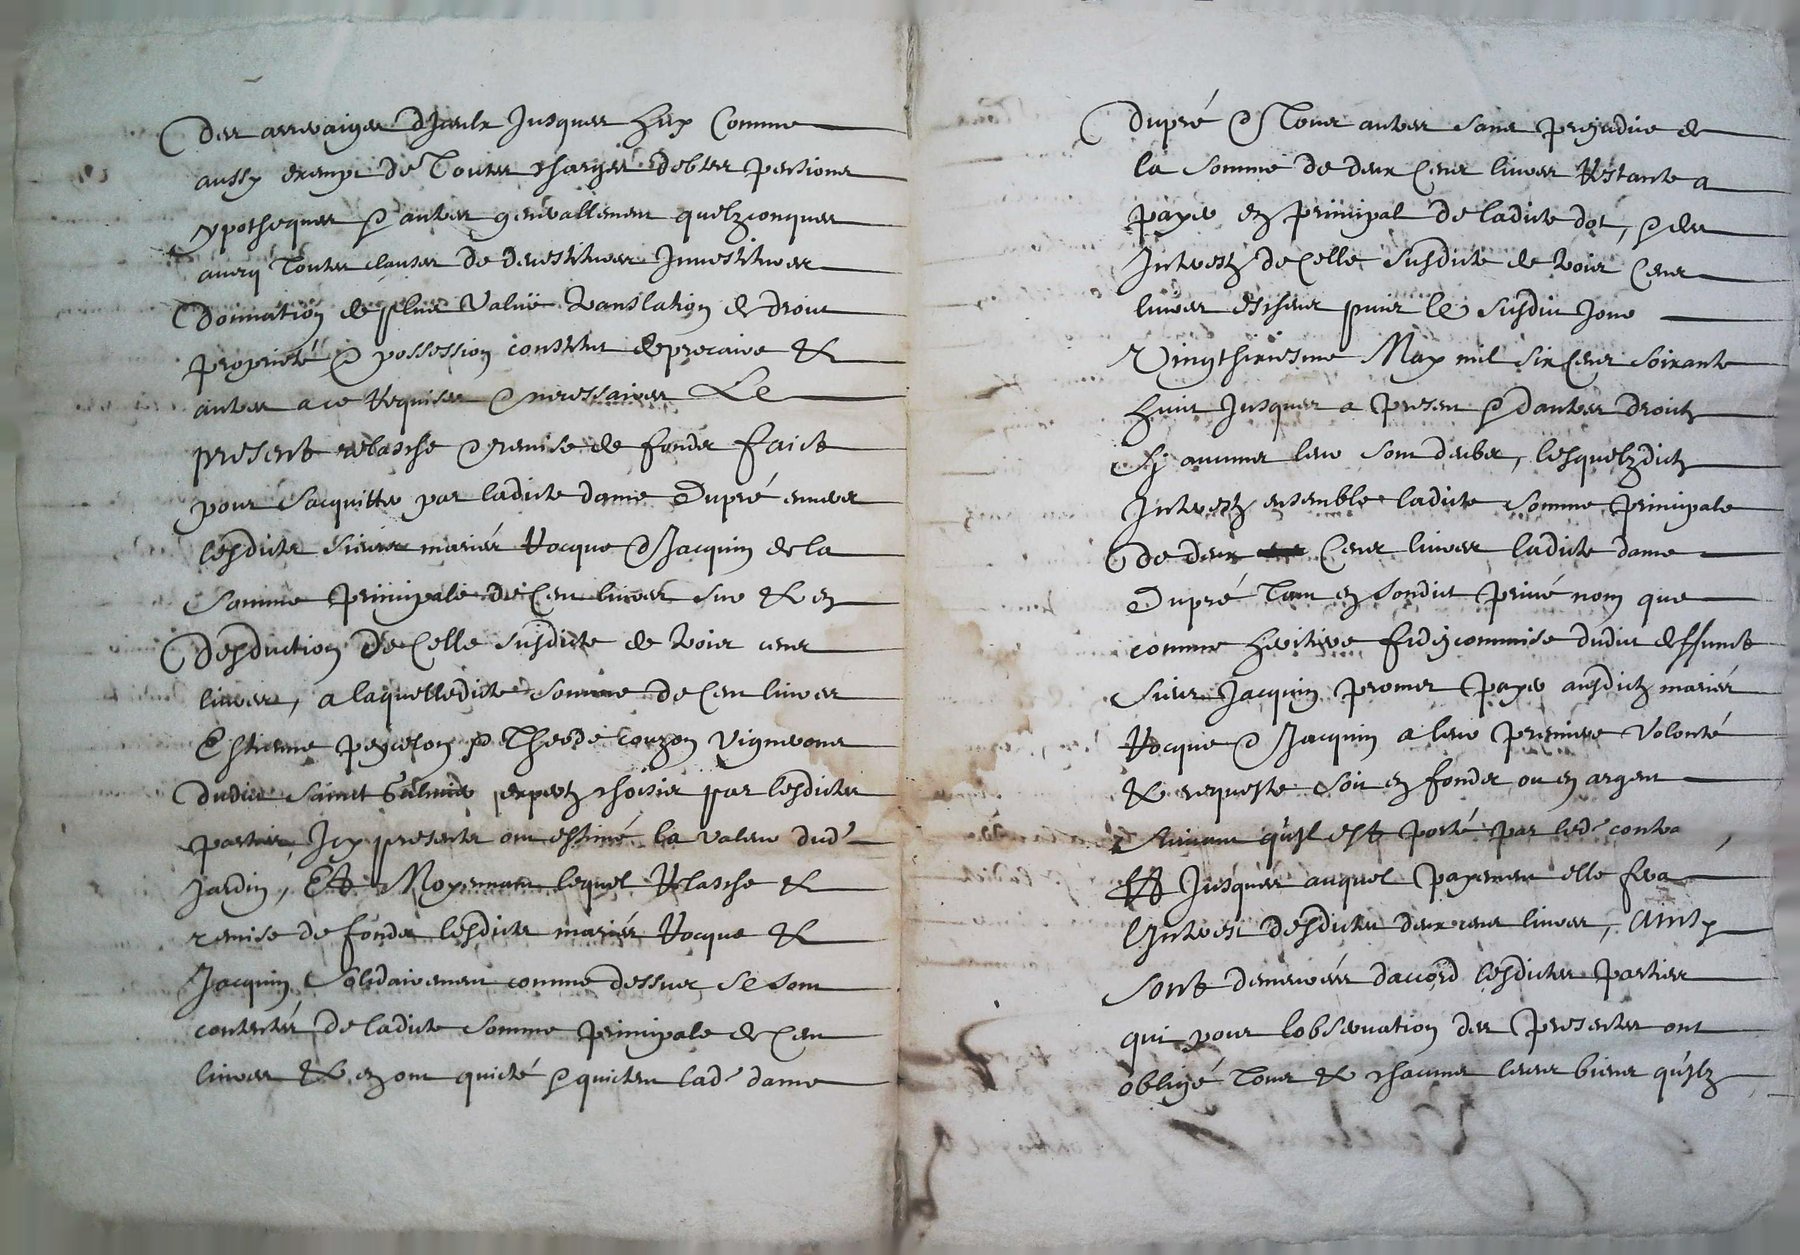 des arreraiges diceulx jusques huy comme
aussy exempt de toutes charges debtes pensions
ypotheques & autres generallement quelzconques
avecq toutes clauses de devestitures investitures
donnation de plus value translation de droit
proprieté & possession constitut de precaire &
autres a ce requises & necessaires Le
present relasche & remise de fondz faict
pour sacquitter par ladicte dame Dupré envers
lesdicts sieurs mariés Rocque & Jacquin de la
somme principale de cent livres sur & en
desduction de celle susdicte de trois cens
livres, a laquelledicte somme de cent livres
Estienne & Couzon vignerons
dudict Sainct Galmier expertz choisis par lesdictes
parties, icy presents ont estimé la valeur dud.
jardin, Et Moyennant lequel relasche &
remise de fondz lesdicts mariés Rocque &
Jacquin solidairement comme dessus se sont
contentés de ladicte somme principale de cent
livres & en ont quicté & quictent lad. dame
Dupré & tous autres sans prejudice de
la somme de deux cens livres restante a
payer en principal de ladicte dot, & des
interestz de celle susdicte de trois cens
livres escheus puis le susdict jour
vingthuictiesme May mil six cens soixante
huict jusques a present & dautres droictz
sy aucuns leur sont deubz, lesquelzdictz
interestz ensemble ladicte somme principale
de deux cens livres ladicte dame
Dupré tant en sondict privé nom que
comme heritiere fideicommise dudict deffunct
sieur Jacquin promet payer ausdictz mariés
Rocque & Jacquin a leur premiere volonté
& requeste soit en fondz ou en argent
suivant quil est porté par led. contra
Et jusques auquel payement elle fera
linterest desdictes deux cens livres, ainsy
sont demeurés daccord lesdictes parties
qui pour lobservation des presentes ont
obligé tous & chacuns leurs biens quilz